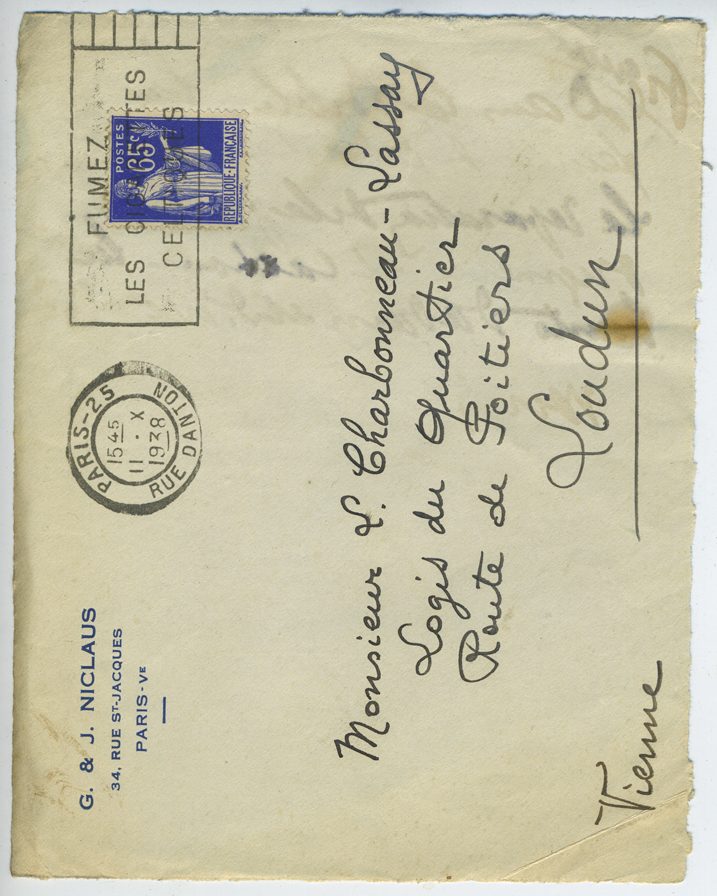 G. & J. NICLAUS
34, RUE ST-JACQUES
PARIS-VE
PARIS-25
1545
11 · X
1938
RUE DANTON
FUMEZ
LES
POSTES
65c
REPUBLIQUE·FRANÇAISE
Monsieur L. Charbonneau-Lassay
Logis du Quartier
Route de Poitiers
Loudun
Vienne